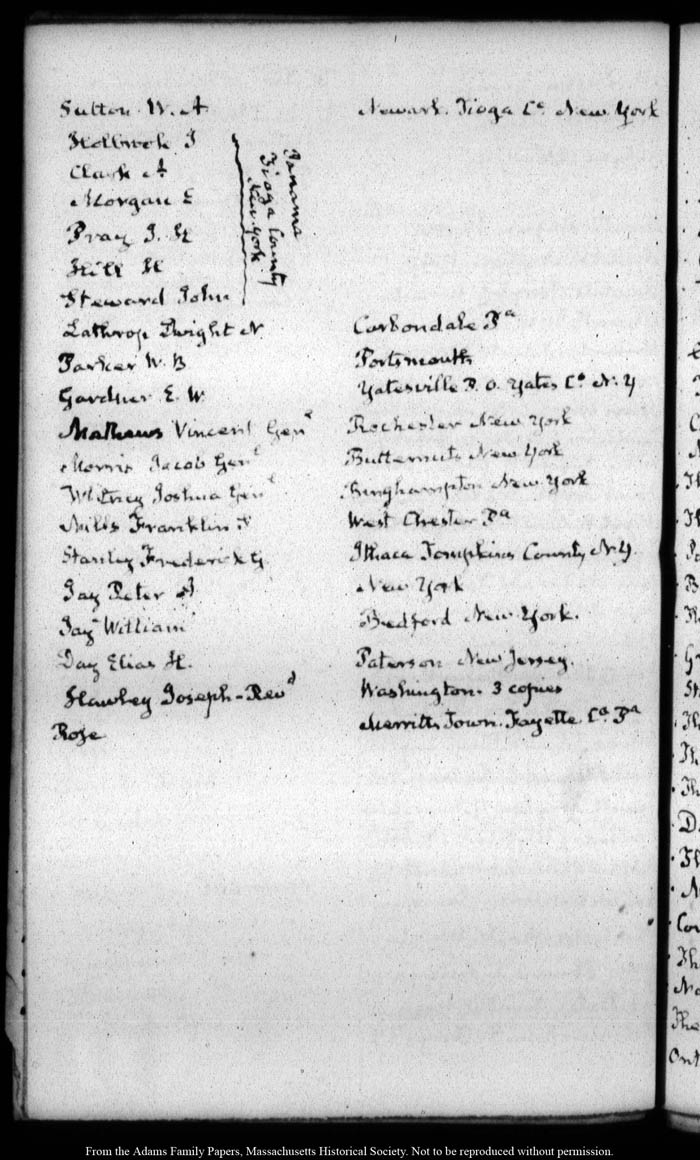 Sutton W. A. Newark. Tioga Co New York
Holbrook J
Clark A
Morgan E
Pray J. H
Hill H
Steward John
Panama
Tioga County
New York
Lathrop Dwight N Carbondale Pa
Parker W. B Portsmouth
Gardner E. W. Yatesville P. O. Yates Co N. Y
Mathews Vincent Genl Rochester New York
Morris Jacob Genl Butternuts New York
Whitney Joshua Genl Binghampton New York
Mills Franklin West Chester Pa
Stanley Frederick G. Ithaca Tompkins County N. Y.
Jay Peter A New York
Jay William Bedford New York.
Day Elias H. Paterson New Jersey
Hawley Joseph - Revd Washington. 3 copies
Rose Merritts Town. Fayette. Co. Pa
From the Adams Family Papers, Massachusetts Historical Society. Not to be reproduced without permission.